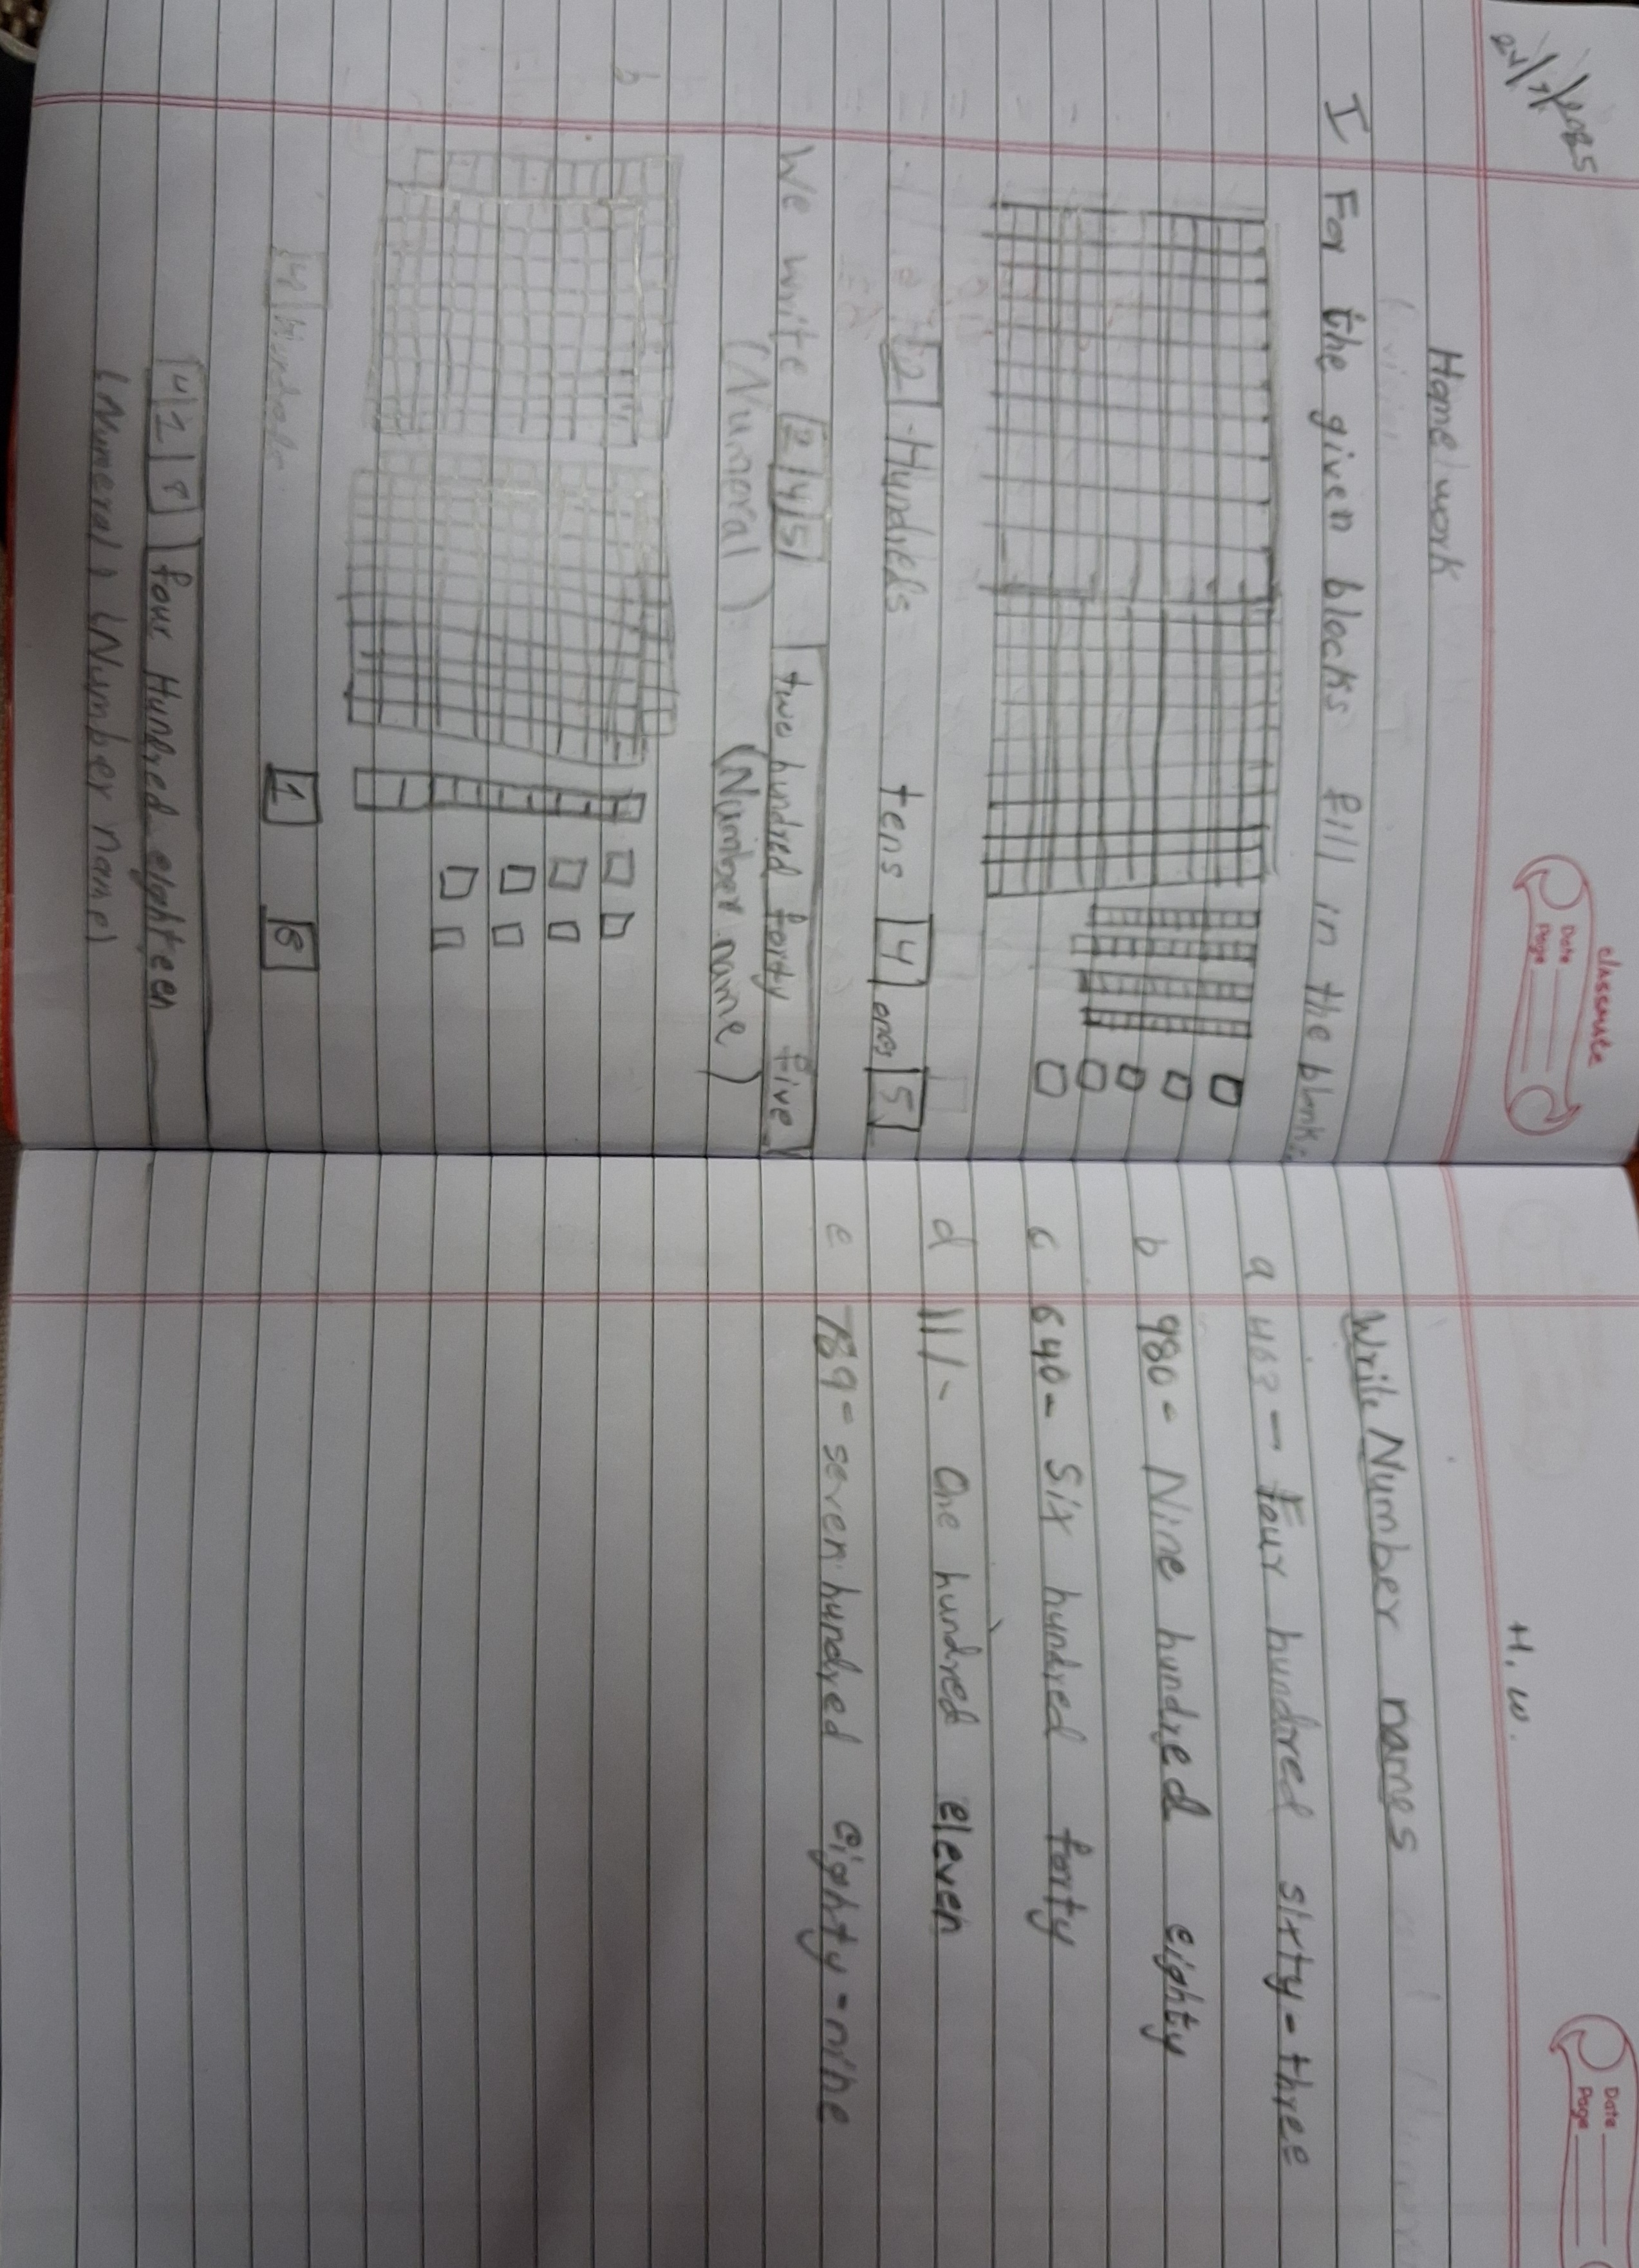 classmate
Date
Page
24/7/2025
Home work
I For the given blocks fill in the blanks.
2 Hundreds tens 4 ones 5
We write 2 4 5 two hundred forty five
(Numeral) (Number name)
b
4 Hundreds 1 8
4 1 8 four Hundred eighteen
(Numeral) (Number name)
Date
Page
H.W.
Write Number names
a 463 - Four hundred sixty-three
b 980 - Nine hundred eighty
c 640 - Six hundred forty
d 111 - One hundred eleven
e 789 - seven hundred eighty-nine